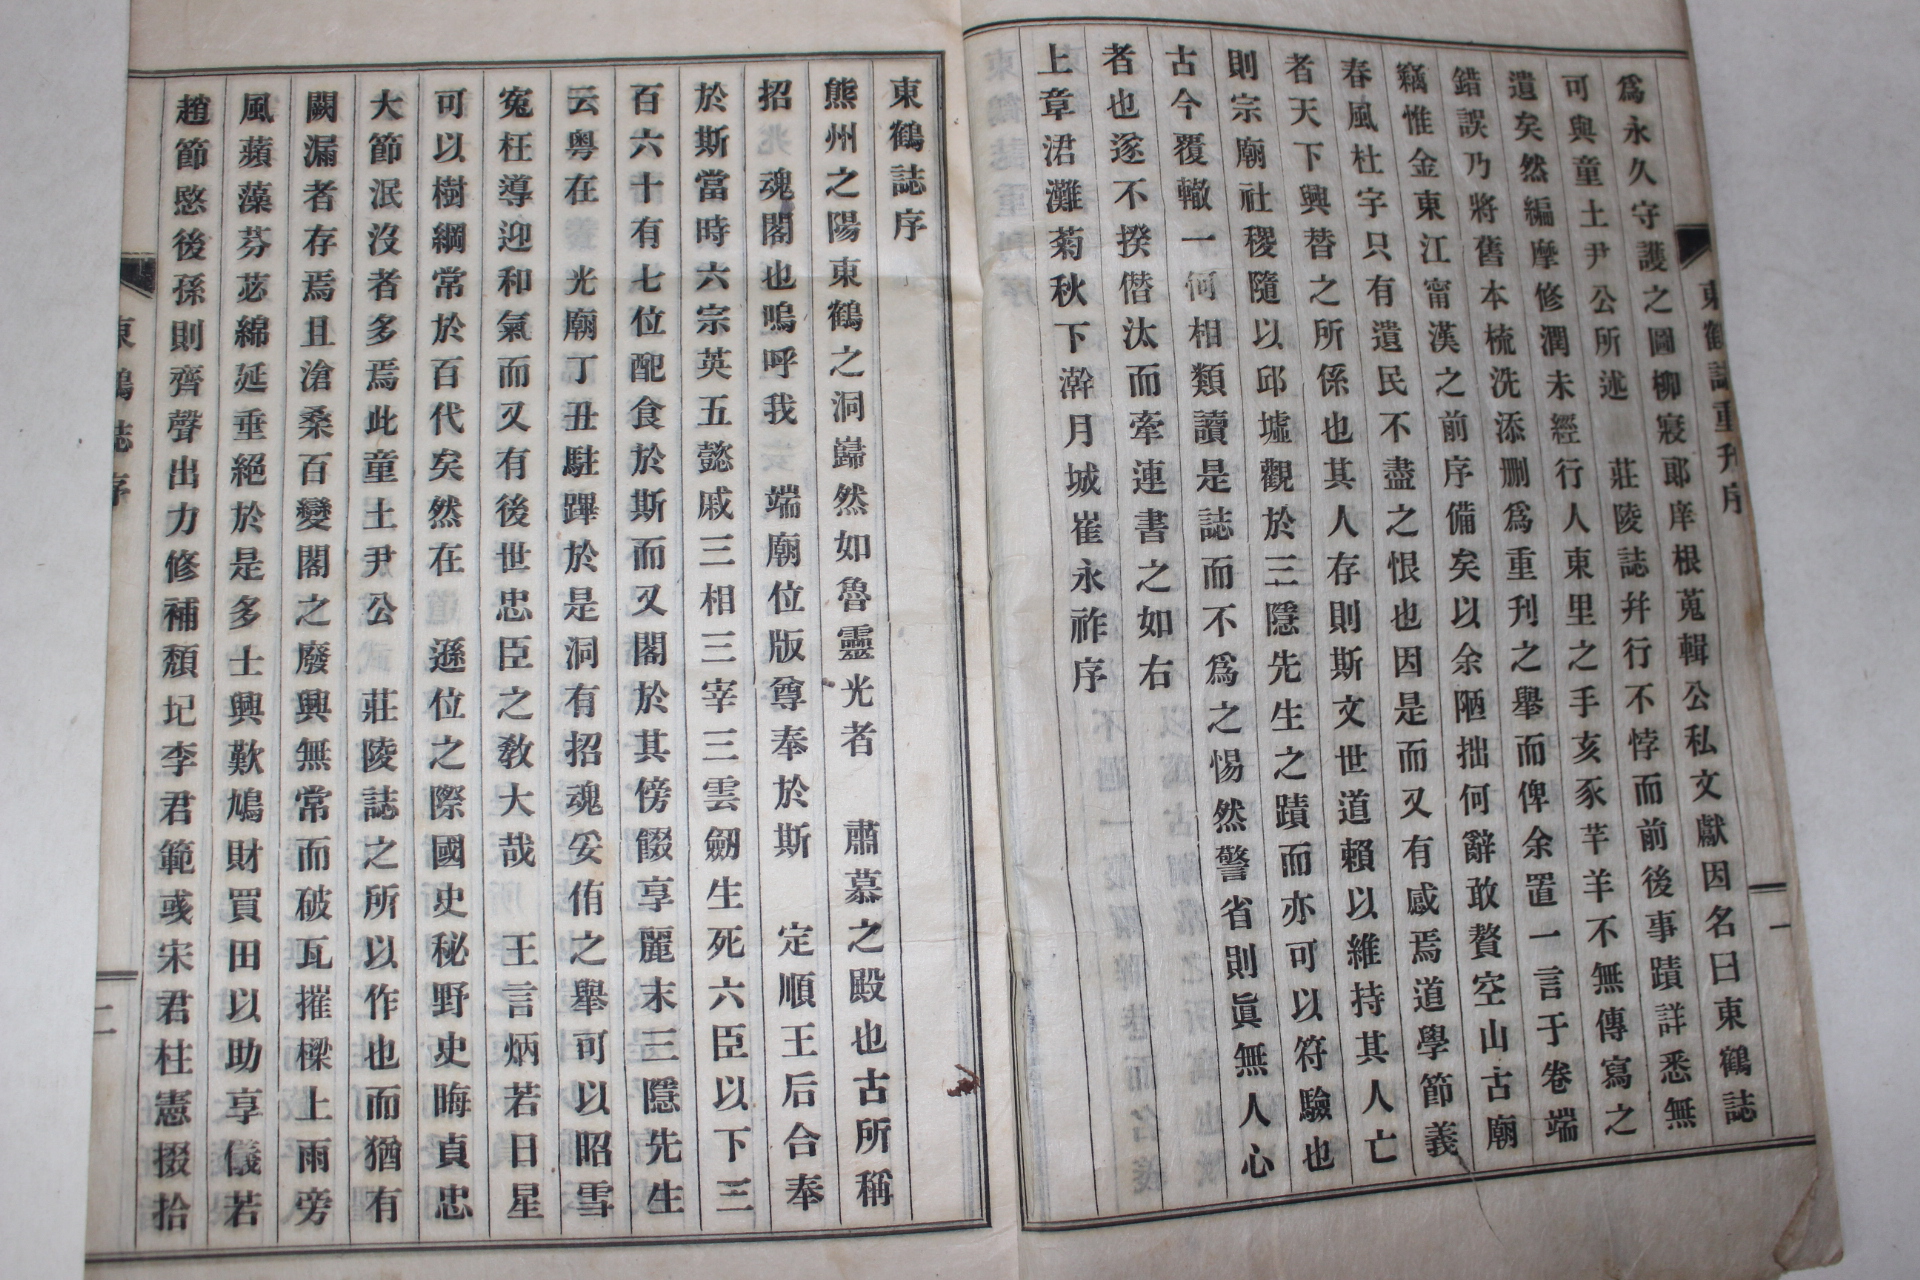 東鶴誌重刋序
一
爲永久守護之圖柳寢郞庠根蒐輯公私文獻因名曰東鶴誌
可與童土尹公所述 莊陵誌幷行不悖而前後事蹟詳悉無
遺矣然編摩修潤未經行人東里之手亥豕芊羊不無傳寫之
錯誤乃將舊本梳洗添删爲重刊之擧而俾余置一言于卷端
竊惟金東江甯漢之前序備矣以余陋拙何辭敢贅空山古廟
春風杜宇只有遺民不盡之恨也因是而又有感焉道學節義
者天下興替之所係也其人存則斯文世道賴以維持其人亡
則宗廟社稷隨以邱墟觀於三隱先生之蹟而亦可以符驗也
古今覆轍一何相類讀是誌而不爲之惕然警省則眞無人心
者也遂不揆僭汰而牽連書之如右
上章涒灘菊秋下澣月城崔永祚序
東鶴誌序
熊州之陽東鶴之洞歸然如魯靈光者 肅慕之殿也古所稱
招 魂閣也嗚呼我 端廟位版尊奉於斯 定順王后合奉
於斯當時六宗英五懿戚三相三宰三雲劒生死六臣以下三
百六十有七位配食於斯而又閣於其傍餟享麗末三隱先生
云粤在 光廟丁丑駐蹕於是洞有招魂妥侑之擧可以昭雪
寃枉導迎和氣而又有後世忠臣之敎大哉 王言炳若日星
可以樹綱常於百代矣然在 遜位之際國史秘野史晦貞忠
大節泯沒者多焉此童土尹公 莊陵誌之所以作也而猶有
闕漏者存焉且滄桑百變閣之廢興無常而破瓦摧樑上雨旁
風蘋藻芬苾綿延垂絕於是多士興歎鳩財買田以助享儀若
趙節愍後孫則齊聲出力修補頹圮李君範彧宋君柱憲掇拾
東鶴誌序
二